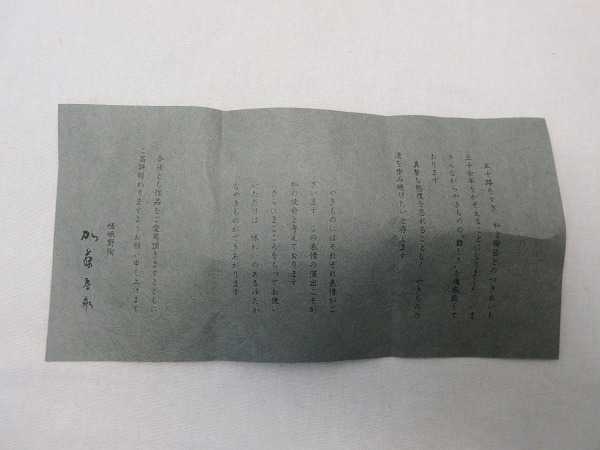 五十路をすぎ 私と陶芸とのつきあいも
三十余年をかぞえることになりました いま
さらながらやきものの〝難しさ〟を痛感致して
おります
真摯な態度を忘れることなく やきものの
道を歩み続けたいと存じます
やきものにはそれぞれ表情がご
ざいます この表情の演出こそが
私の使命と考えております
さらにまごころをもってお使い
いただけば 味わいのあるゆたか
なやきものができあがります
今後とも作品をご愛用頂きますとともに
ご高評賜わりますようお願い申し上げます
嵯峨野陶
加藤